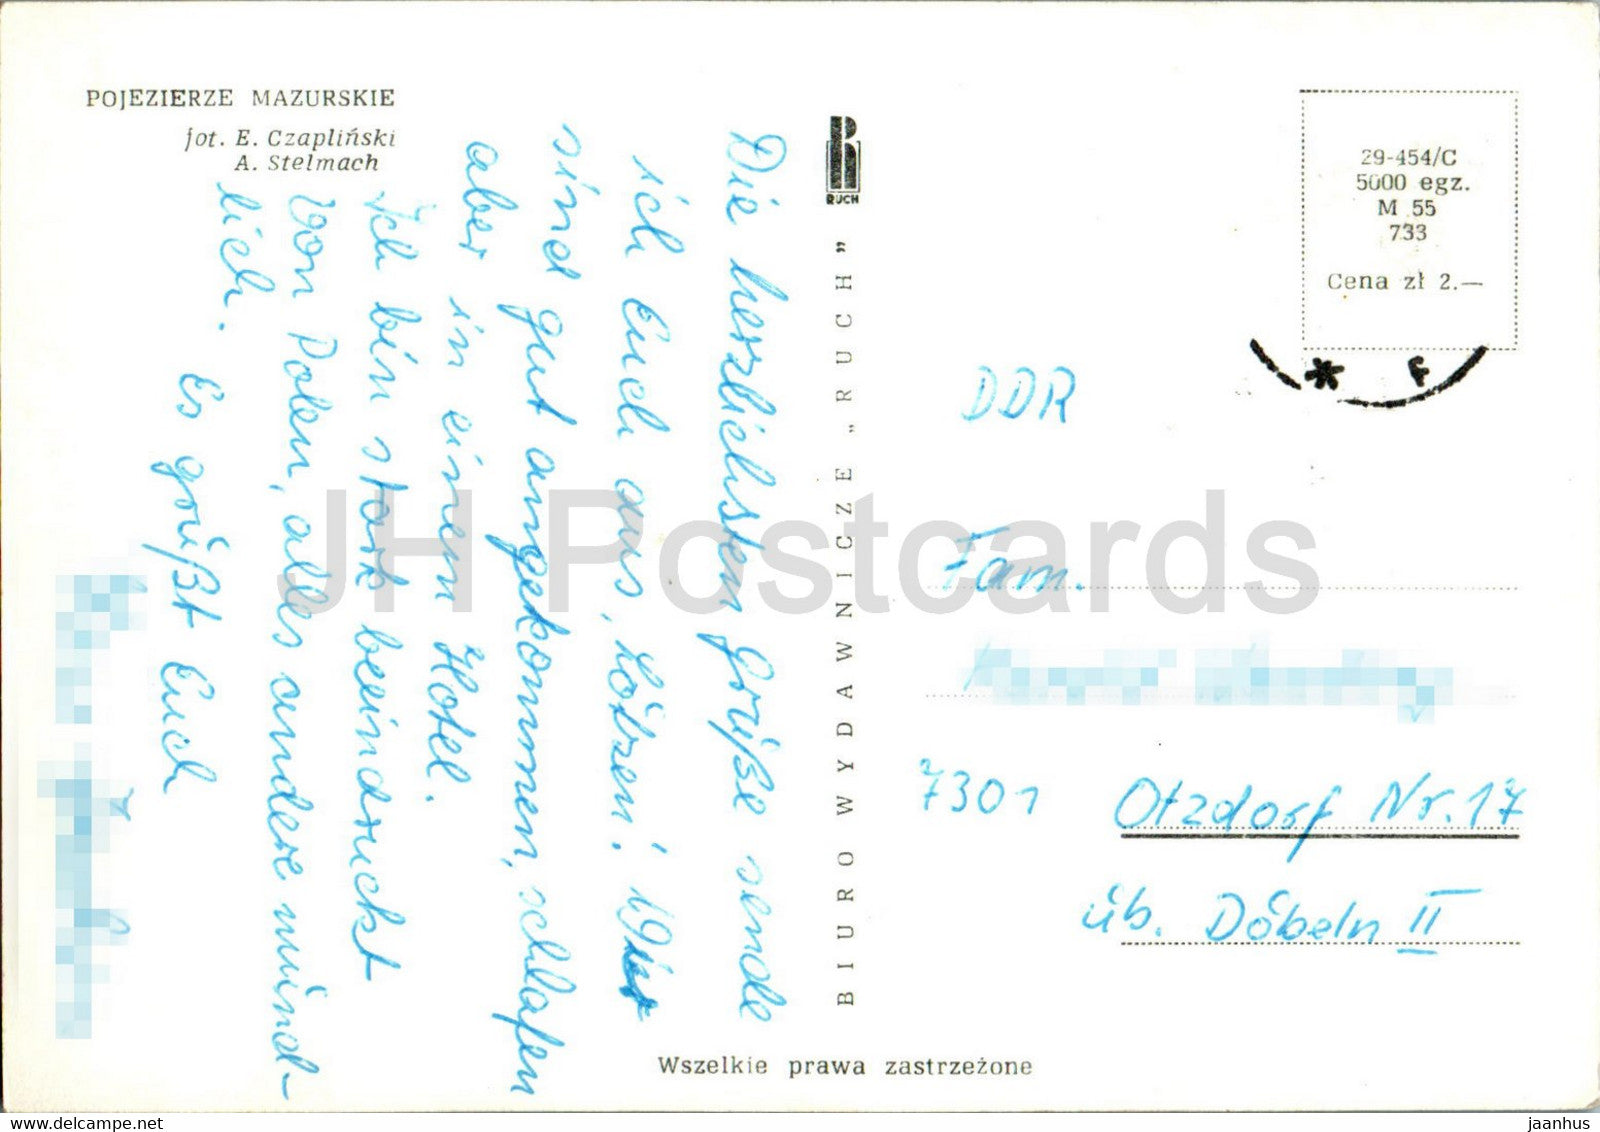 POJEZIERZE MAZURSKIE
fot. E. Czapliński
A. Stelmach
Die herzlichsten Grüße sende
ich Euch aus „Lötzen! Wir
sind gut angekommen, schlafen
aber in einem Hotel.
Ich bin stark beeindruckt
von Polen, alles andere münd-
lich.
Es grüßt Euch
RUCH
BIURO WYDAWNICZE „RUCH”
29-454/C
5000 egz.
M 55
733
Cena zł 2.—
DDR
Fam.
7301 Otzdorf Nr. 17
üb. Döbeln II
Wszelkie prawa zastrzeżone
JH Postcards
www.delcampe.net
jaanhus